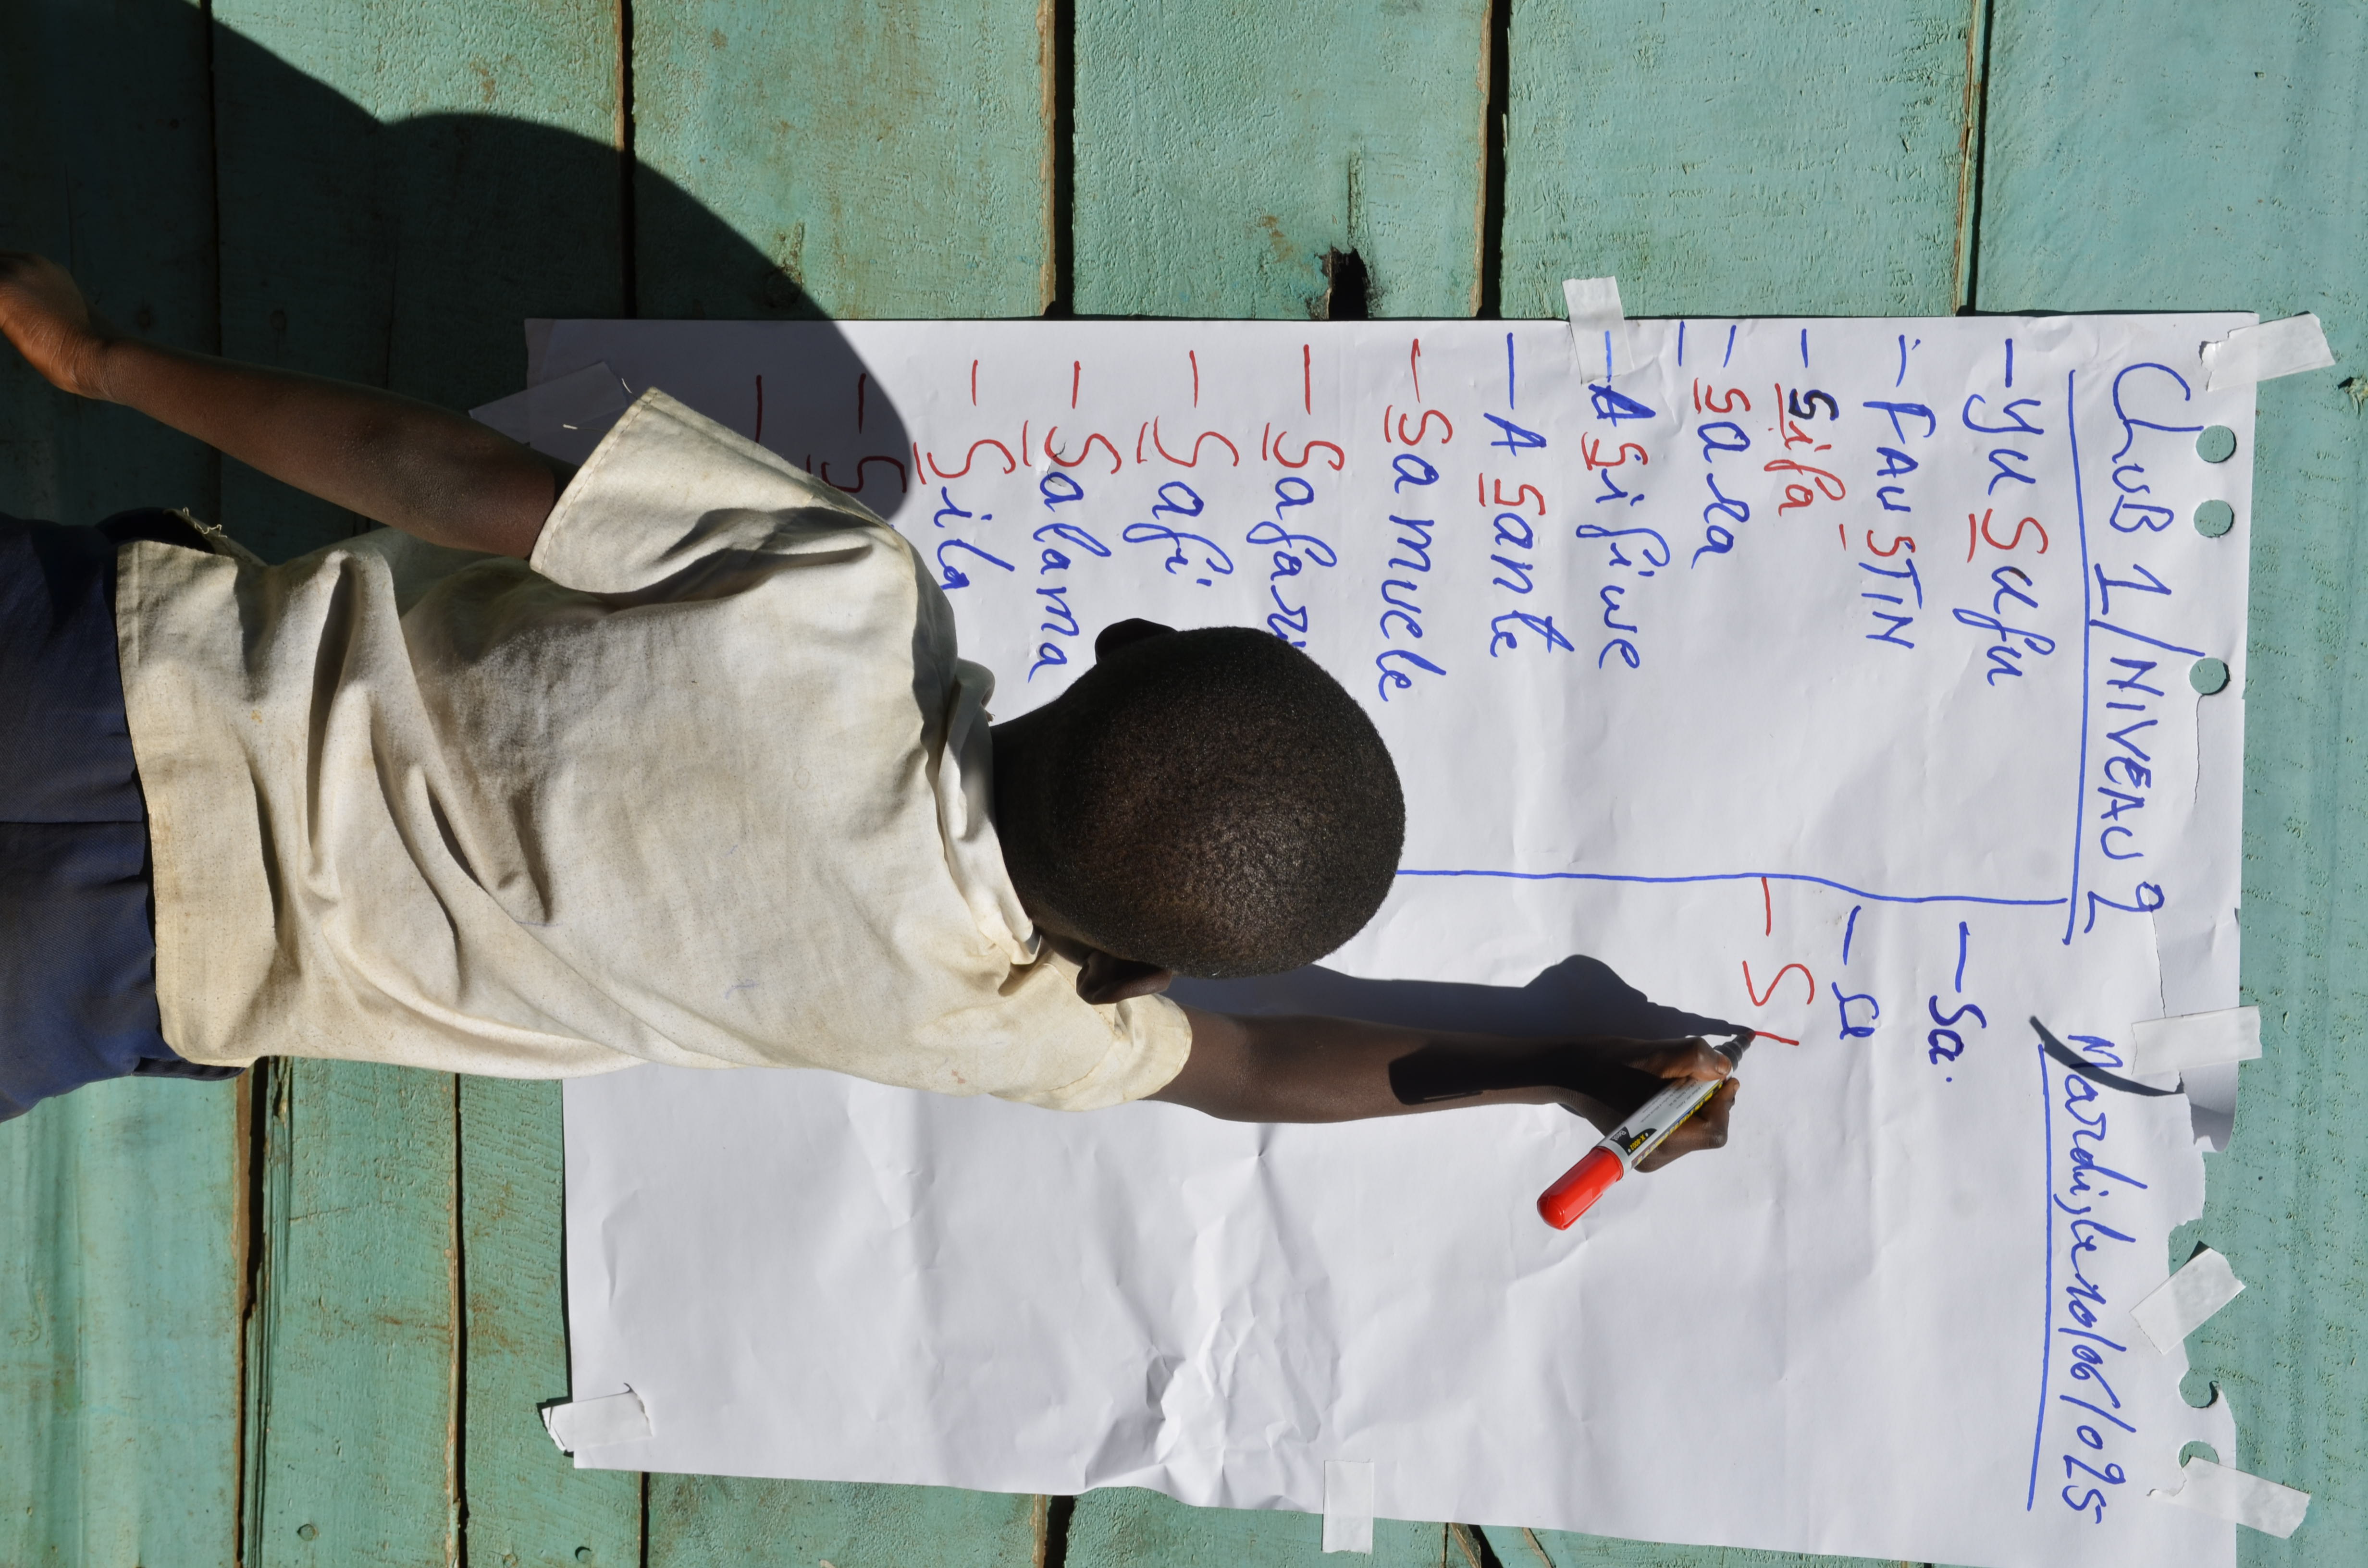 Club 1/NIVEAU 2 Mardi, le 10/06/025
- YuSufu
- FAUSTIN
- Sifa
- Sara
- ASifiwe
- ASante
- Samuele
- Safari
- Safi
- Salama
- Sila
- S
-
- Sa.
- Se
- Si